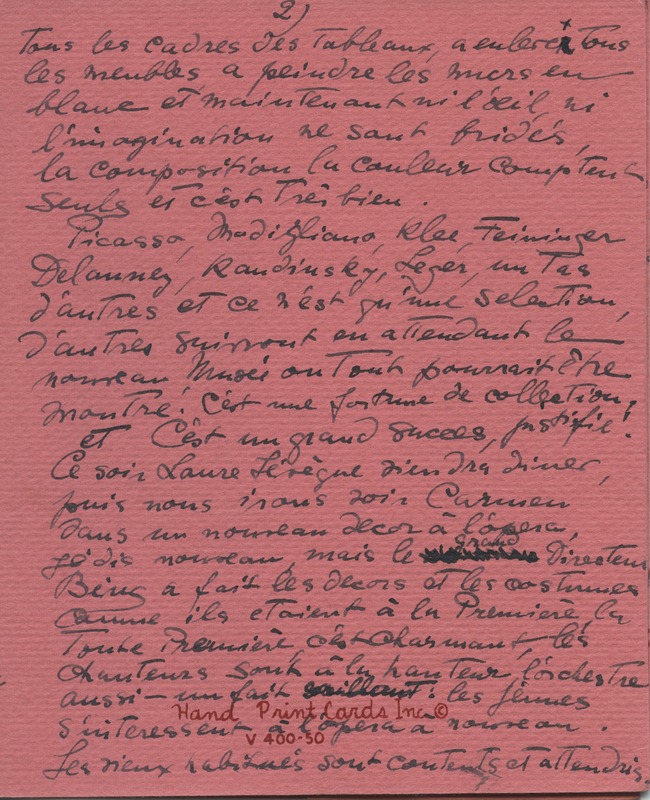 2)
Tous les cadres des tableaux, a enlever tous
les meubles, a peindre les murs en
blanc et maintenant ni l'œil, ni
l'imagination ne sont bridés,
la composition la couleur comptent
seuls et c'est très bien.
Picasso, Modigliano, Klee, Feininger
Delauney, Kandinsky, Leger, un tas
d'autres et ce n'est qu'une selection,
d'autres suivront en attendant le
nouveau Musée ou tout pourrait être
montré. C'est une fortune de collection,
et c'est un grand succes, justifié!
Ce soir Laure Lévèque viendra diner,
puis nous irons voir Carmen
dans un nouveau decor à l'opera,
je dis nouveau, mais le grand Directeur
Bing a fait les decors et les costumes
comme ils etaient à la Première, la
toute Première, c'est charmant, les
chanteurs sont à la hauteur, l'orchestre
aussi – un fait : les jeunes
s'interessent à l'opera a nouveau.
Les vieux habitués sont contents et attendris.
Hand Print Cards Inc. ©
V 400-50